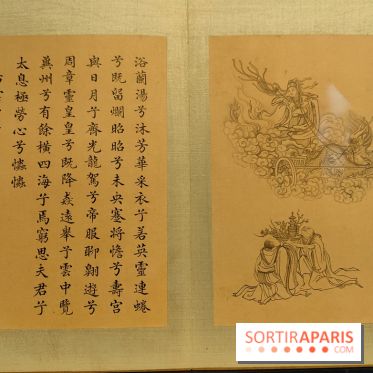 浴蘭湯兮沐芳華采衣兮若英靈連蜷
兮既留爛昭昭兮未央蹇將憺兮壽宮
與日月兮齊光龍駕兮帝服聊翱遊兮
周章靈皇皇兮既降猋遠舉兮雲中覽
冀州兮有餘橫四海兮焉窮思夫君兮
太息極勞心兮𢥞𢥞
SORTIRAPARIS
.COM